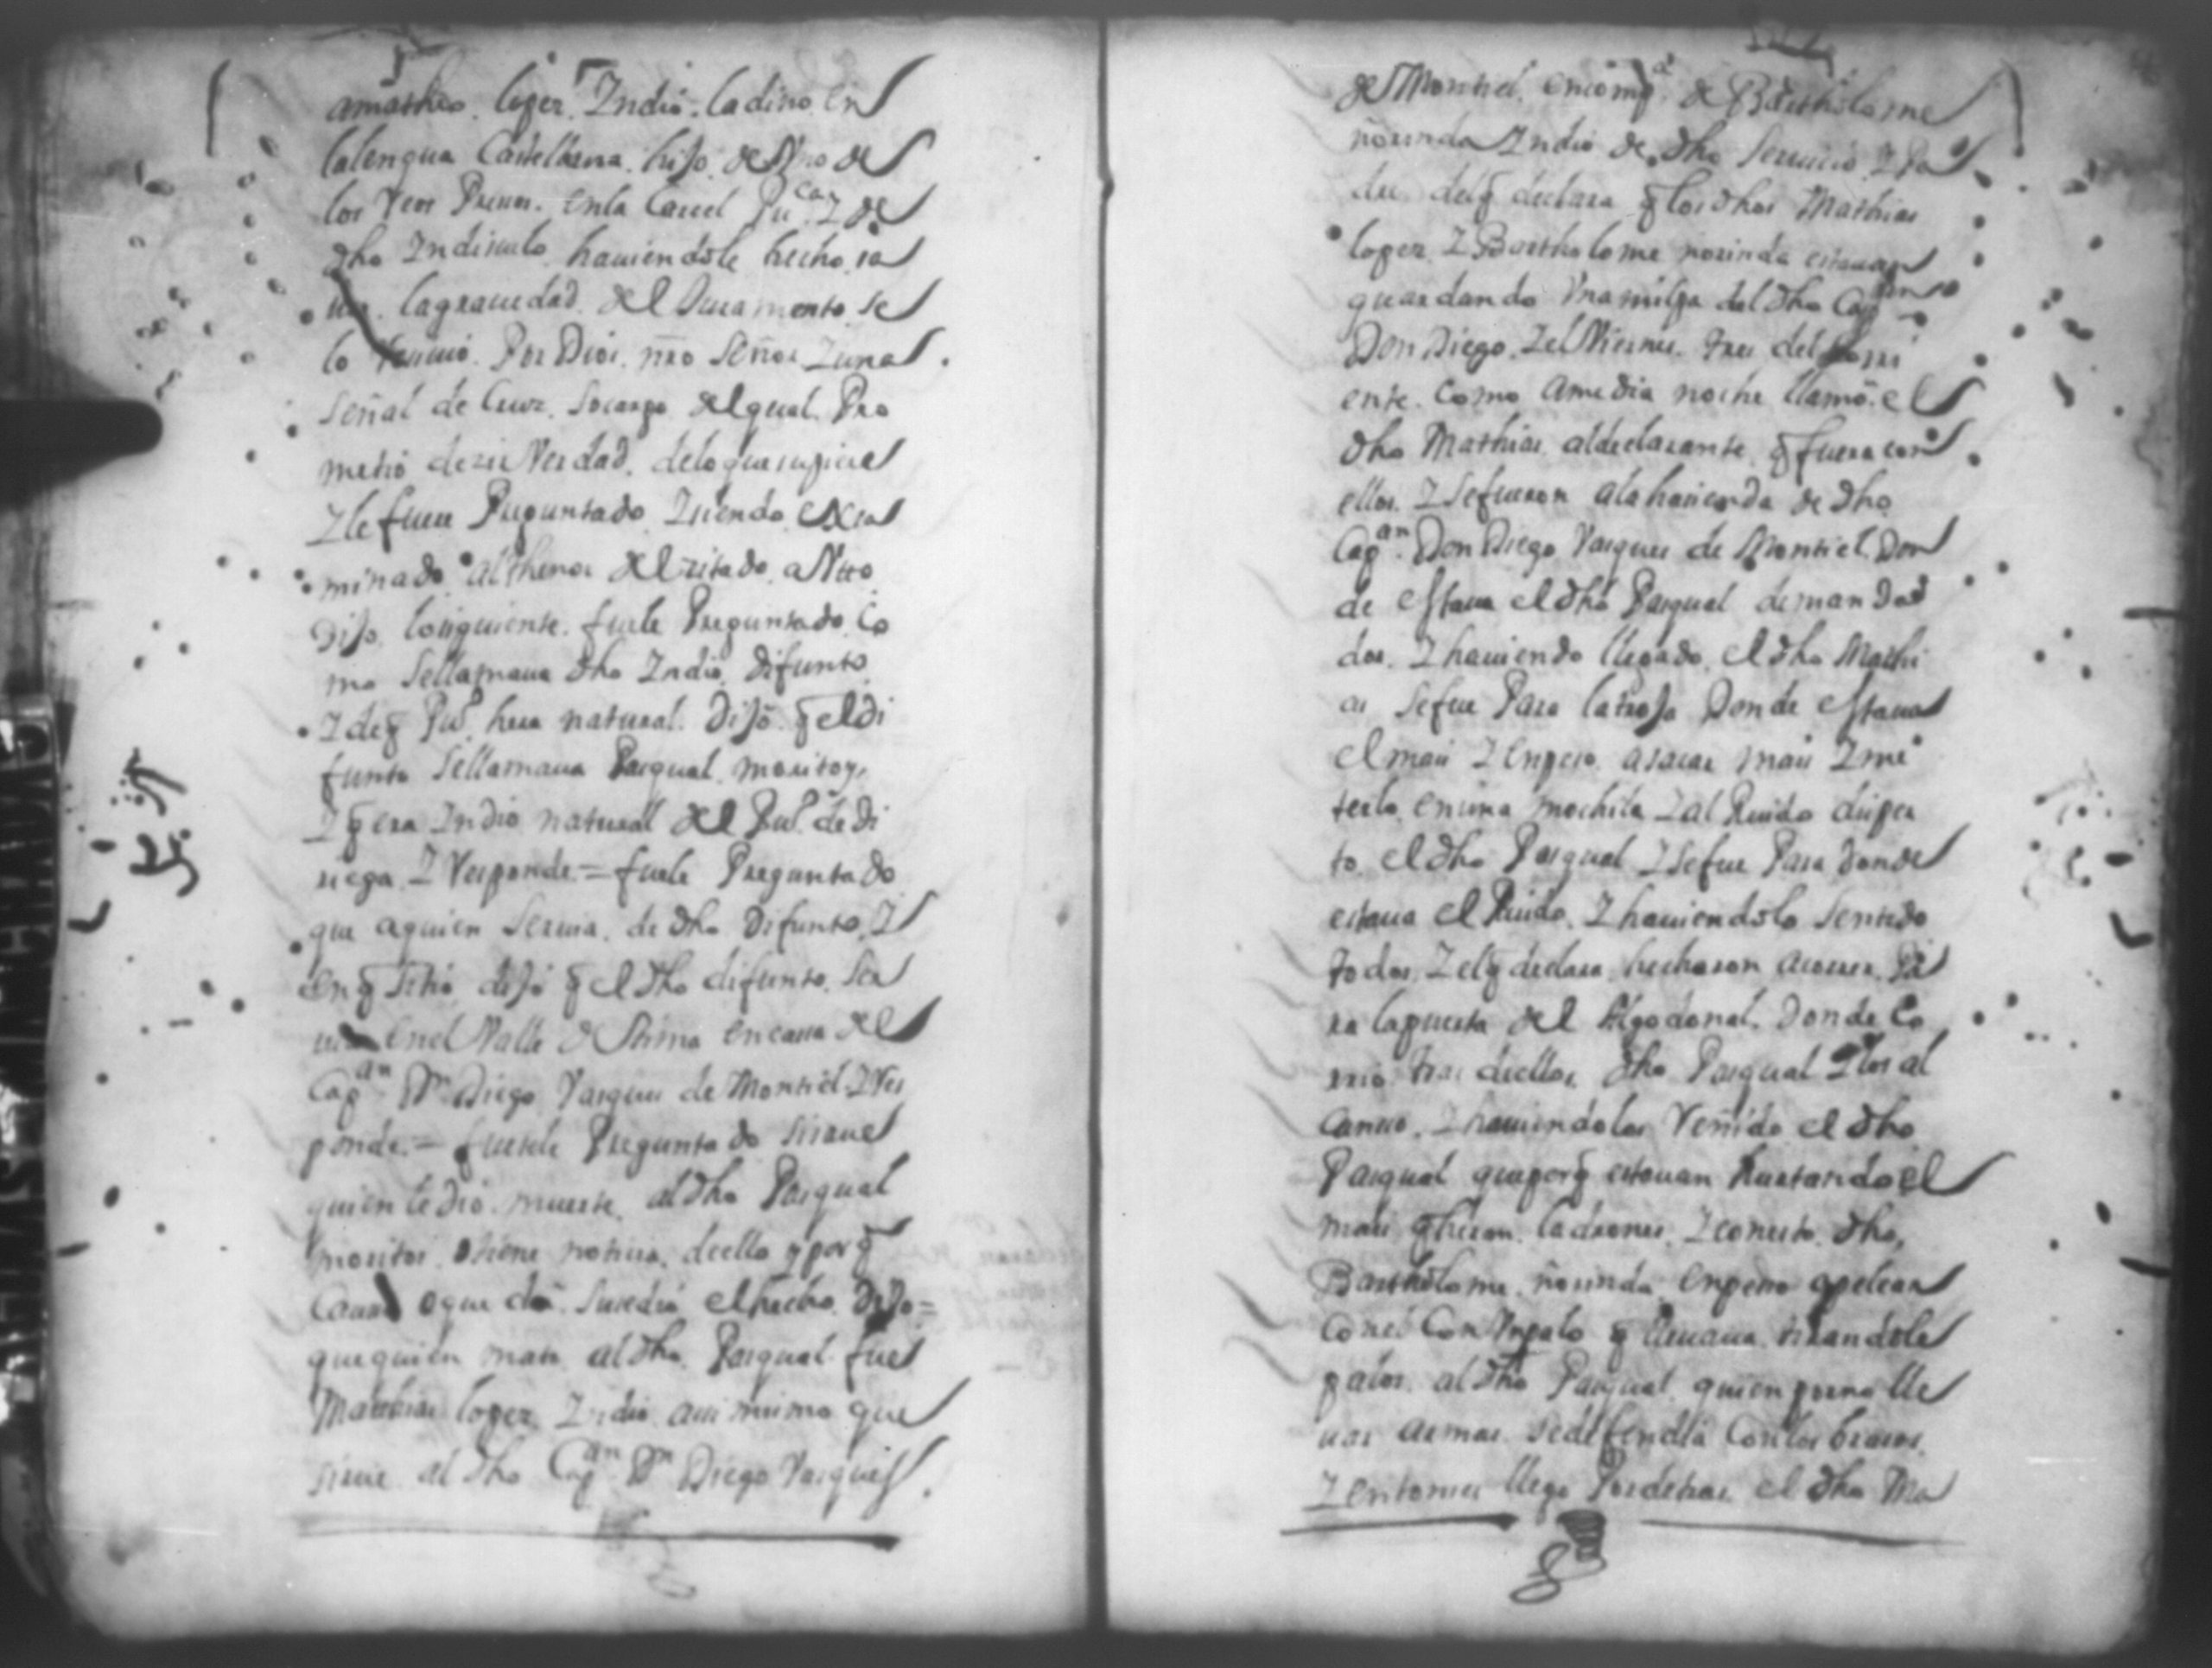 a matheo lopez Indio ladino en
la lengua Castellana hijo de Vno de
los Reos Presos en la Carcel Pu^ca I de
dho Indisuelo hauiendole hecho sa
uer la grauedad del Juramento se
lo reciuio Por Dios nro Señor I una
señal de Cruz so cargo del qual Pro
metio dezir Verdad de lo que supiere
I le fuere Preguntado I siendo Exsa
minado al thenor del zitado autto
Dijo lo siguiente fuele Preguntado Co
mo se llamaua dho Indio Difunto
I de q̃ Pu^o hera natural Dijo q̃ el di
funto se llamaua Pasqual moritos
I q̃ era Indio natural del Pu^o de Di
riega I Responde = fuele Preguntado
que a quien seruia de dho Difunto I
en q̃ sitio dijo q̃ el dho difunto ser
uia en el Valle de en casa del
Cap^an D^n Diego Vasques de Montiel I Res
ponde = fuesele Preguntado si saue
quien le dio muerte al dho Pasqual
moritos o tiene noticia de ello y por q̃
Causa o que dia Susedio el hecho Dijo =
que quien mato al dho Pasqual fue
Mathias lopez Indio asi mismo que
sirue al dho Cap^an D^n Diego Vasques
de Montiel en comp^a de Bartholome
ñorinda Indio de dho Seruicio I Pa
dre del q̃ declara q̃ los dhos Mathias
lopez I Bartholome ñorinda estauan
guardando Vna milpa del dho Cap^an
Don Diego I el Viernes tres del Corri
ente Como a media noche llamó el
dho Mathias al declarante q̃ fuera con
ellos I se fueron a la hacienda de dho
Cap^an Don Diego Vasques de Montiel Don
de estaua el dho Pasqual de manda
dor I hauiendo llegado el dho Mathi
as se fue Para la troja Donde estaua
el mais I enpeso a sacar mais I me
terlo en una mochila I al Ruido disper
to el dho Pasqual I se fue Para donde
estaua el Ruido I hauiendolo Sentido
todos I el q̃ declara hecharon a correr Pa
ra la puerta del Algodonal Donde Co
rrio tras de ellos dho Pasqual I los al
canso I hauiendolos Reñido el dho
Pasqual que por q̃ estauan hurtando el
mais q̃ heran ladrones I con esto dho
Bartholome ñorinda Enpeso a pelear
con el Con Vn palo q̃ lleuaua tirandole
palos al dho Pasqual quien por no lle
uar armas se defendia Con los brasos
I entonses llego Por detras el dho Ma